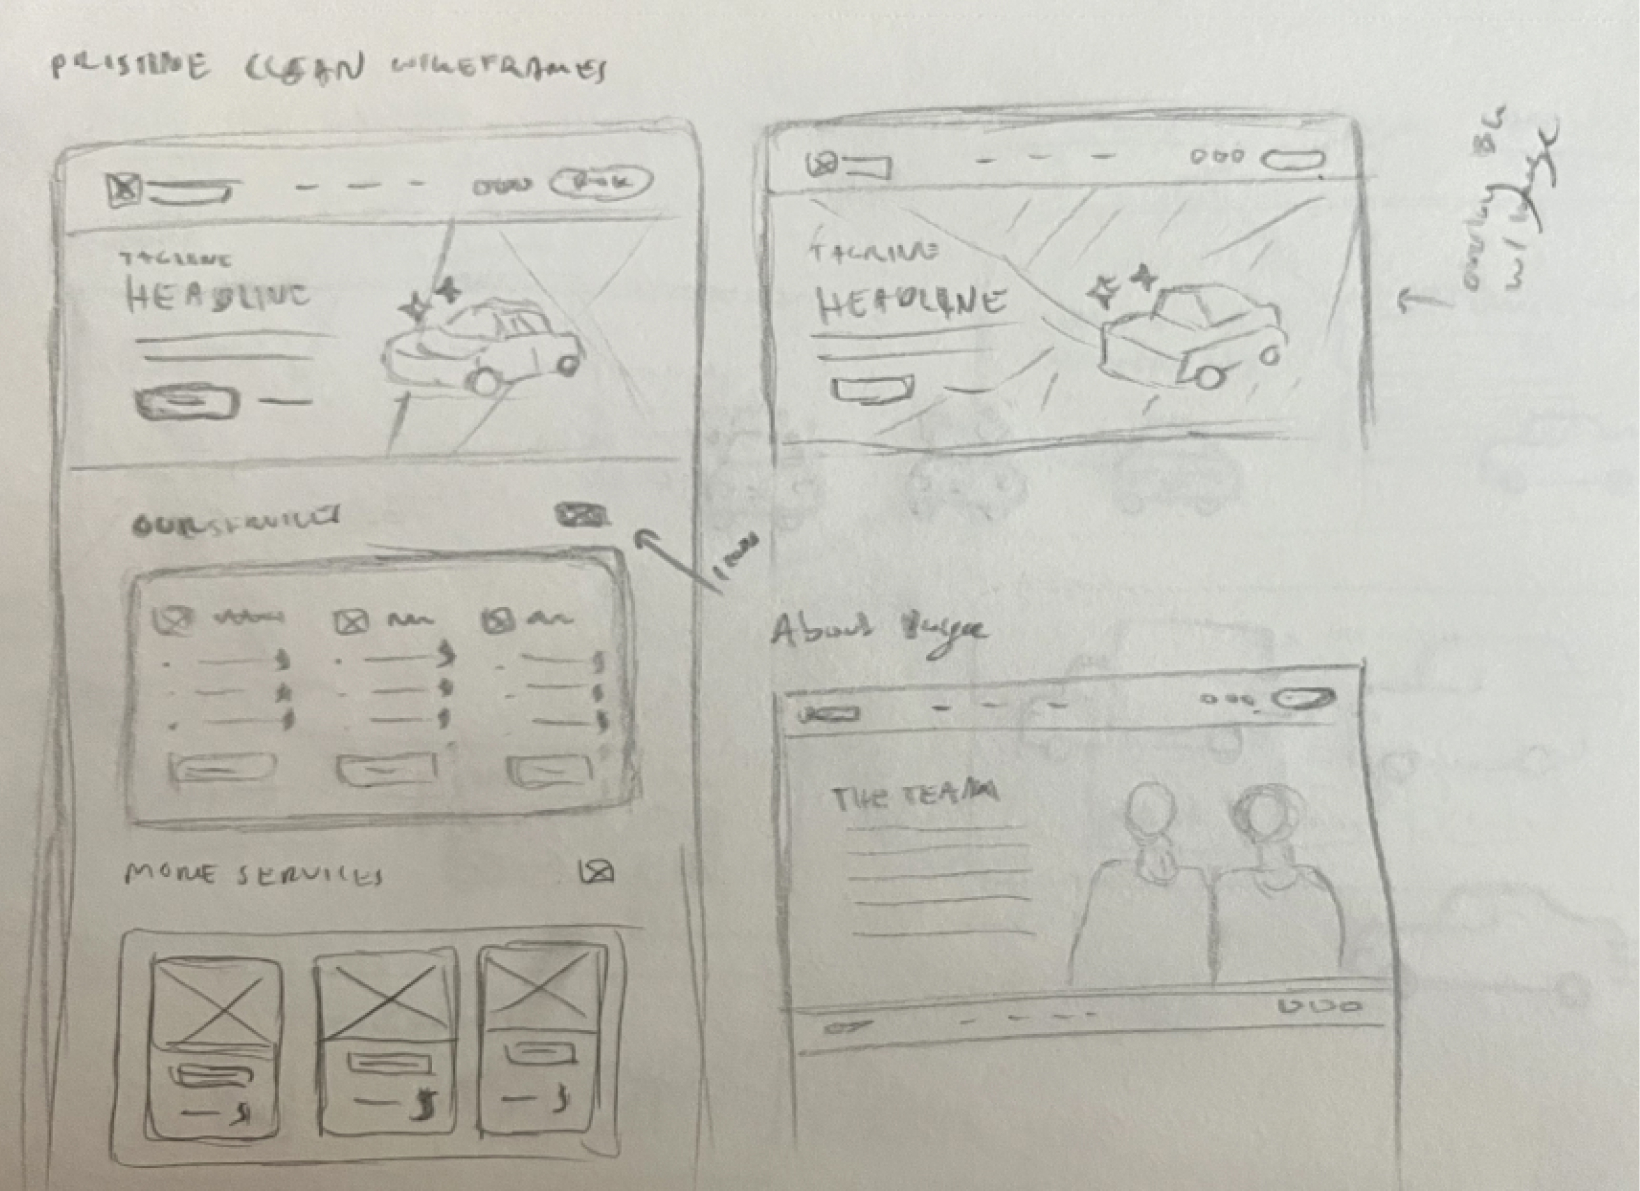 PRISTINE CLEAN WIREFRAMES
Book
TAGLINE
HEADLINE
OUR SERVICES
$
$
$
$
$
$
$
$
$
MORE SERVICES
$
$
$
TAGLINE
HEADLINE
overlay BG
w/ image
About Page
THE TEAM